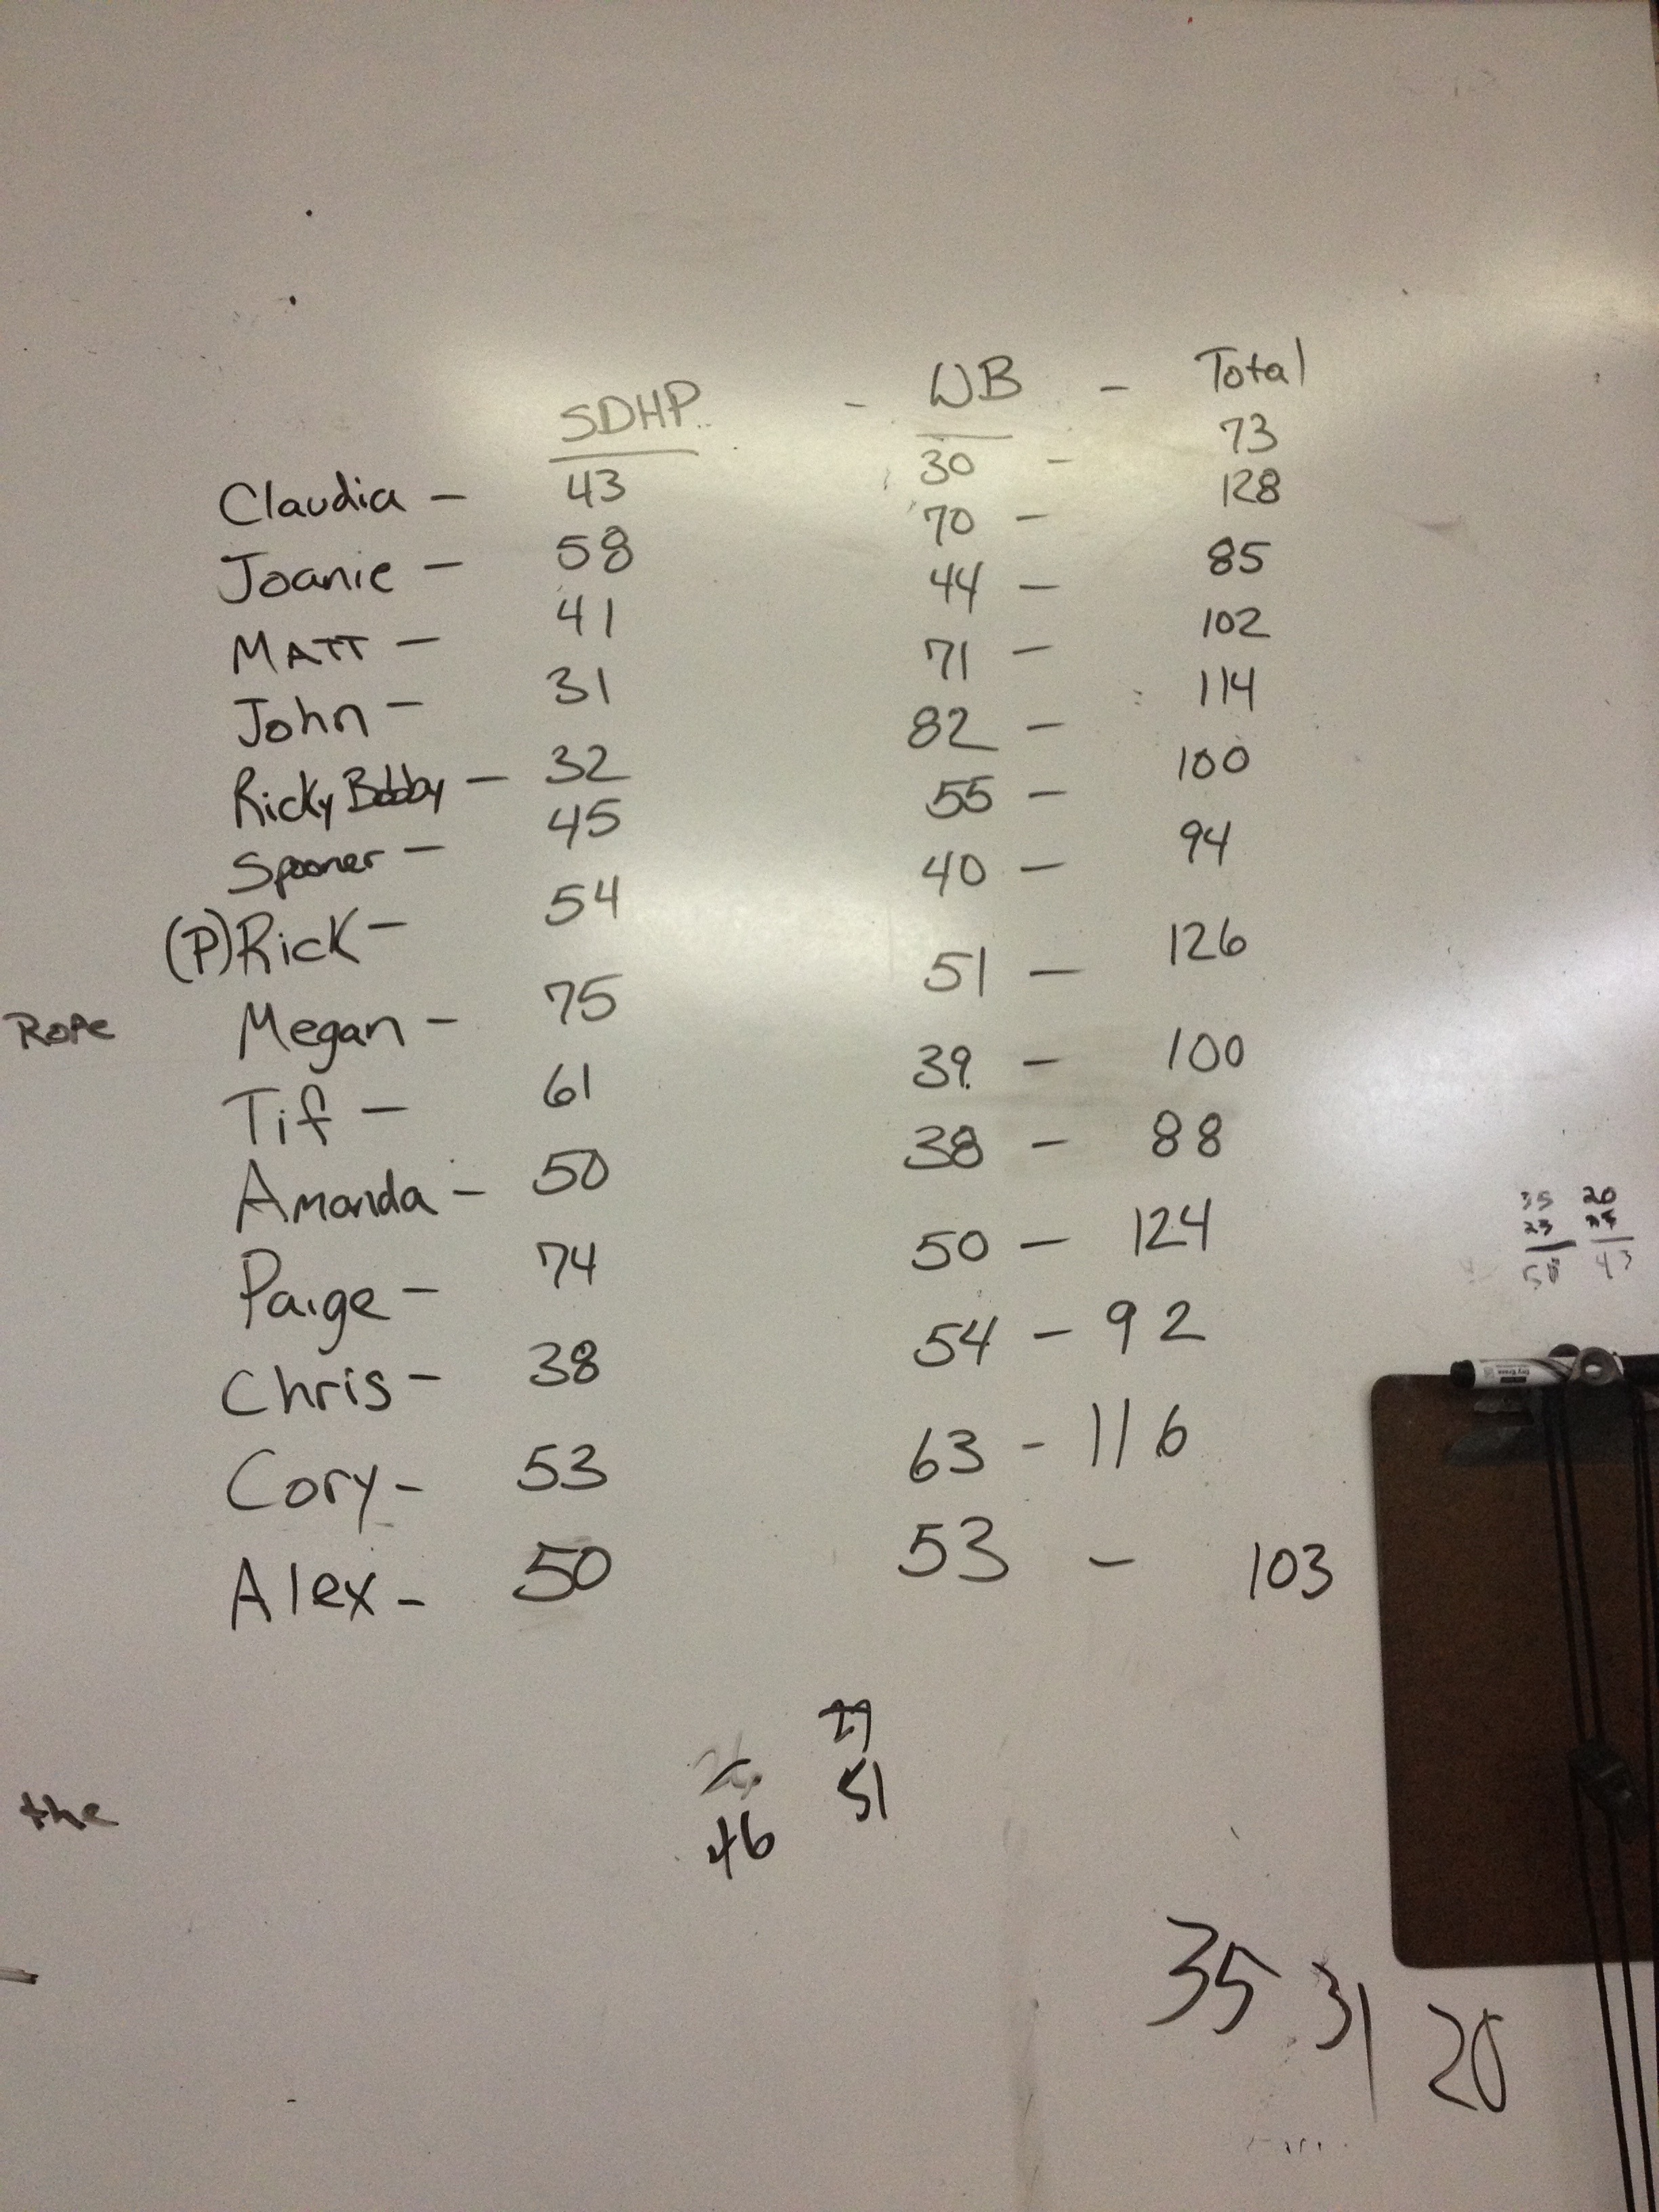 SDHP - WB - Total
Claudia - 43 30 - 73
Joanie - 58 70 - 128
MATT - 41 44 - 85
John - 31 71 - 102
Ricky Bobby - 32 82 - 114
Spooner - 45 55 - 100
(P)Rick - 54 40 - 94
Rope
Megan - 75 51 - 126
Tif - 61 39 - 100
Amanda - 50 38 - 88
Paige - 74 50 - 124
Chris - 38 54 - 92
Cory - 53 63 - 116
Alex - 50 53 - 103
35 20
23
43
51
46
the
35 31 20